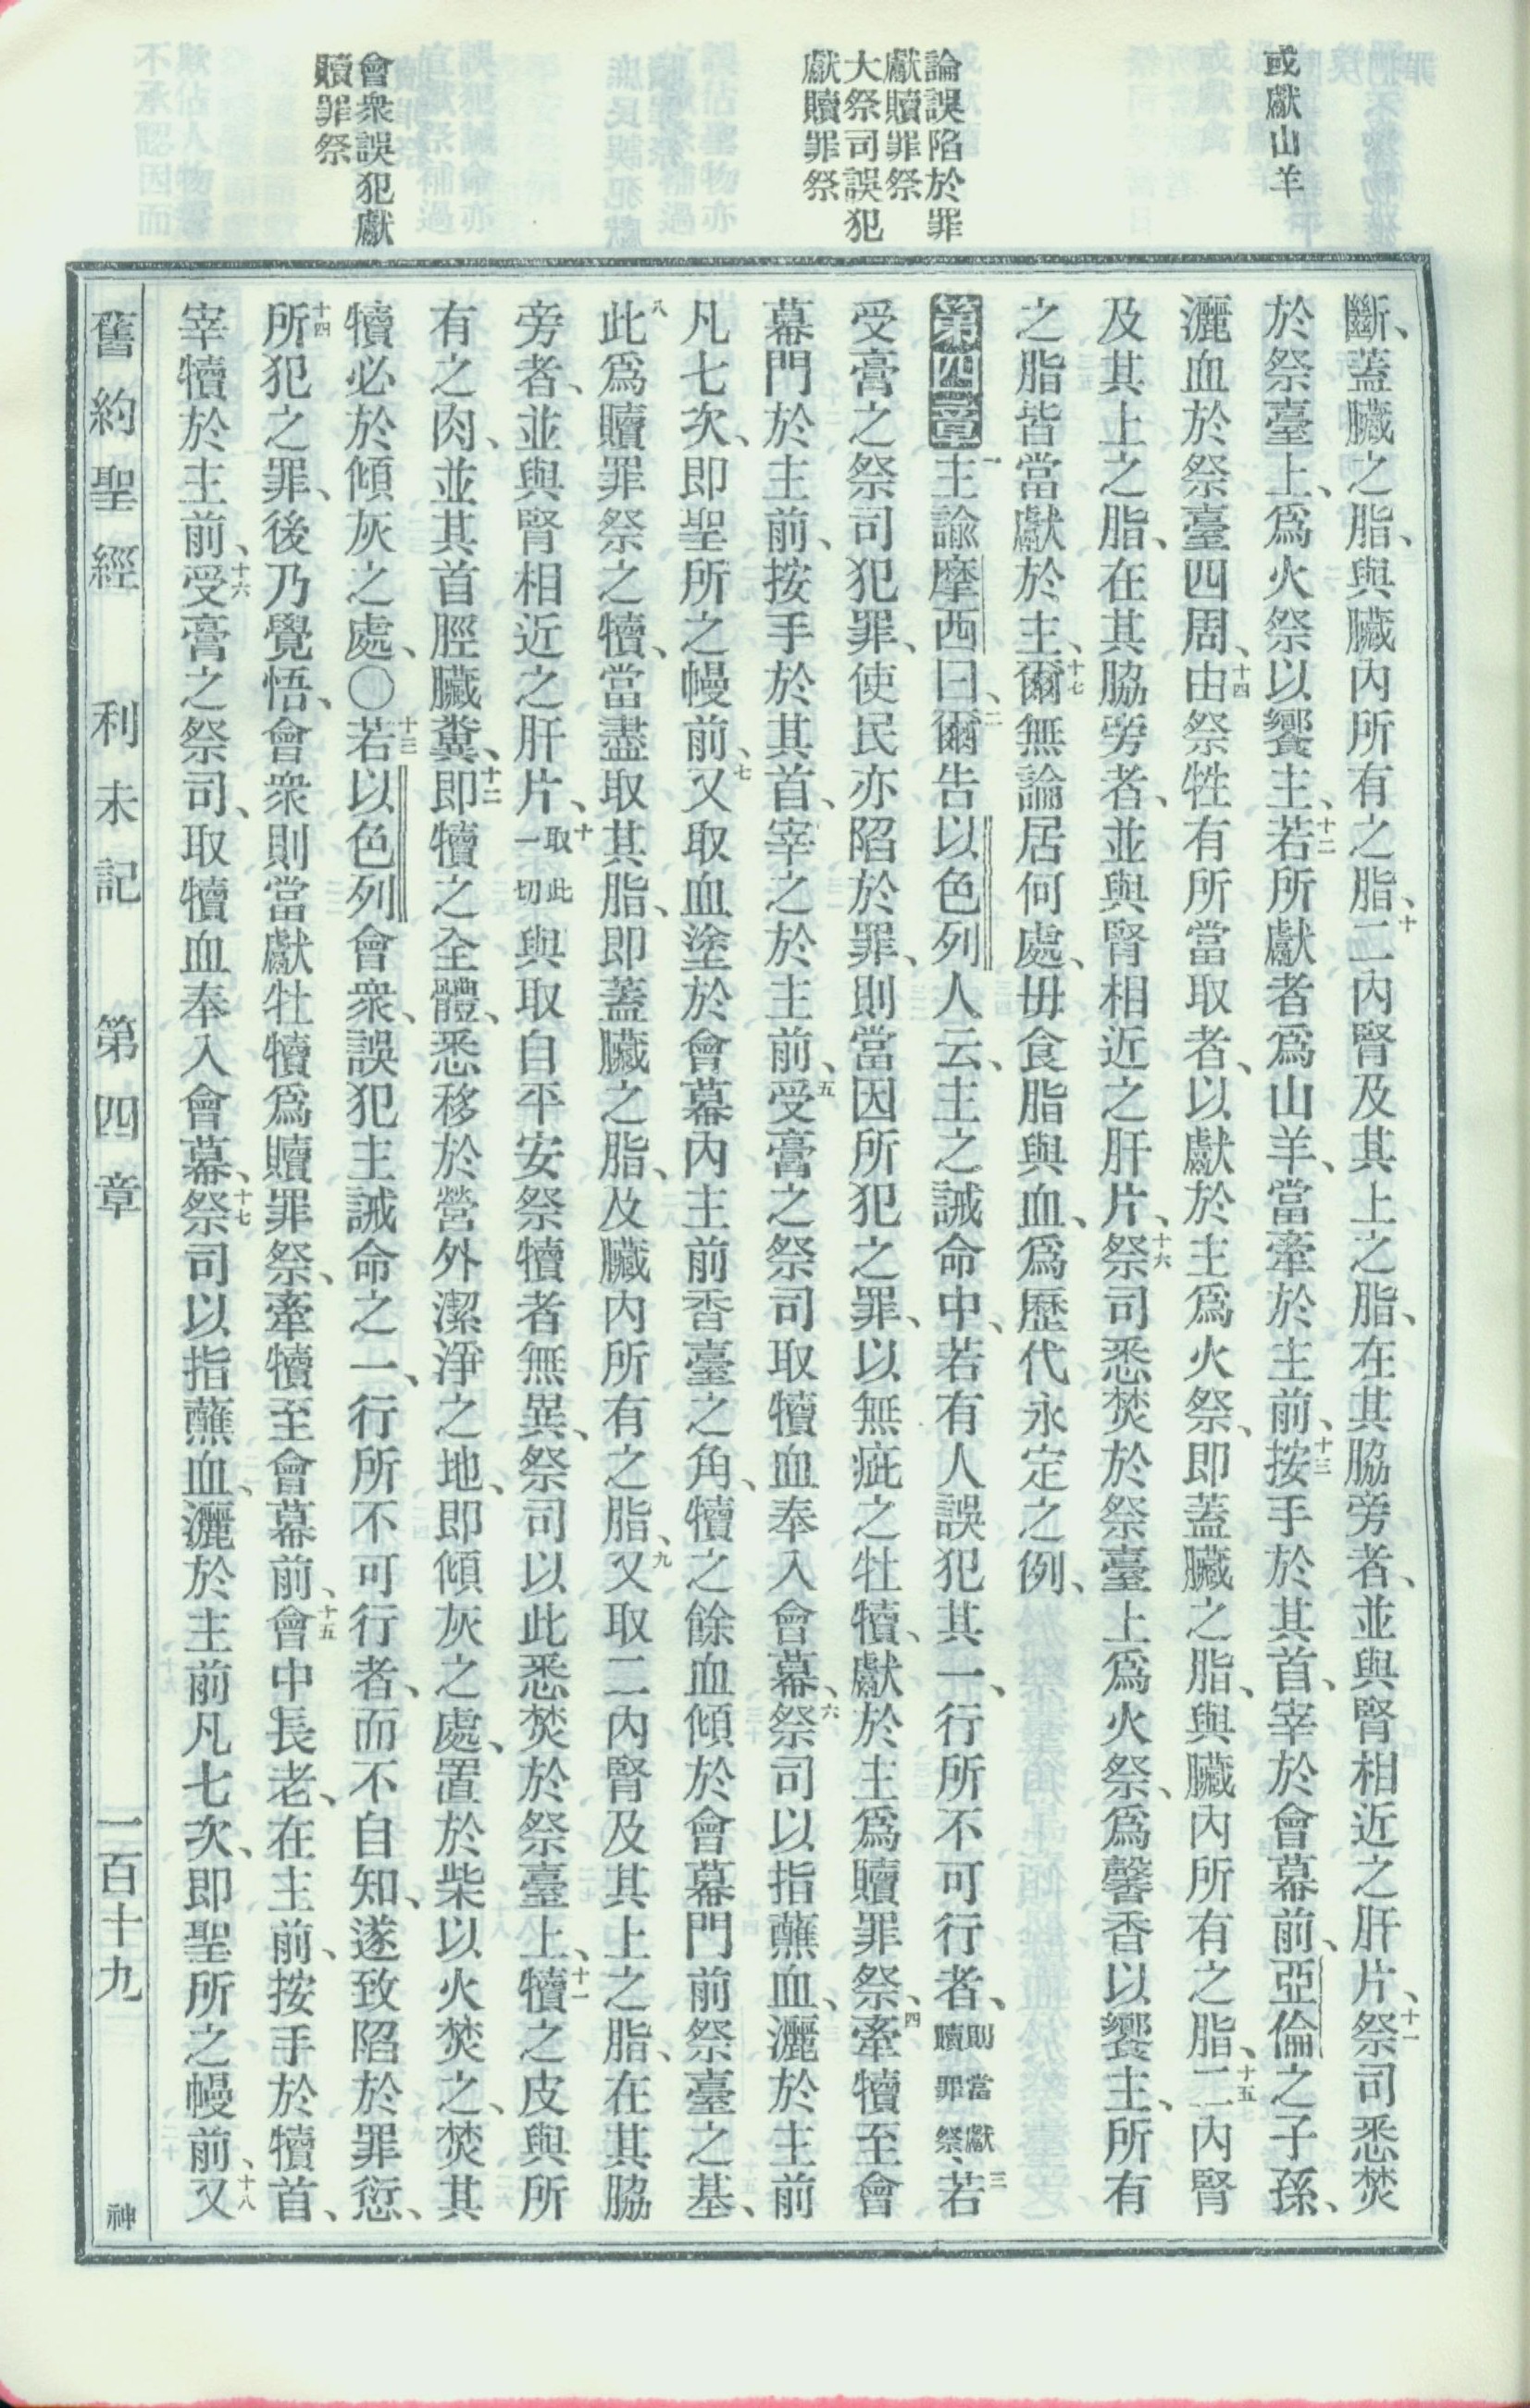 或獻山羊
論誤陷於罪
獻贖罪祭
大祭司誤犯
獻贖罪祭
會衆誤犯獻
贖罪祭
斷、蓋臟之脂、與臟內所有之脂、十二內腎及其上之脂、在其脇旁者、並與腎相近之肝片、十一祭司悉焚
於祭臺上、爲火祭以饗主、十二若所獻者爲山羊、當牽於主前、十三按手於其首、宰於會幕前、亞倫之子孫、
灑血於祭臺四周、十四由祭牲有所當取者、以獻於主爲火祭、即蓋臟之脂、與臟內所有之脂、十五二內腎
及其上之脂、在其脇旁者、並與腎相近之肝片、十六祭司悉焚於祭臺上爲火祭、爲馨香以饗主、所有
之脂皆當獻於主、十七爾無論居何處、毋食脂與血、爲歷代永定之例、
第四章一主諭摩西曰、二爾告以色列人云、主之誡命中、若有人誤犯其一、行所不可行者、則當獻贖罪祭、三若
受膏之祭司犯罪、使民亦陷於罪、則當因所犯之罪、以無疵之牡犢、獻於主爲贖罪祭、四牽犢至會
幕門於主前、按手於其首、宰之於主前、五受膏之祭司取犢血奉入會幕、六祭司以指蘸血、灑於主前
凡七次、即聖所之幔前、七又取血塗於會幕內主前香臺之角、犢之餘血傾於會幕門前祭臺之基、
八此爲贖罪祭之犢、當盡取其脂、即蓋臟之脂、及臟內所有之脂、九又取二內腎及其上之脂、在其脇
旁者、並與腎相近之肝片、十取此一切與取自平安祭犢者無異、祭司以此悉焚於祭臺上、十一犢之皮與所
有之肉、並其首脛臟糞、十二即犢之全體、悉移於營外潔淨之地、即傾灰之處、置於柴以火焚之、焚其
犢必於傾灰之處、〇十三若以色列會衆、誤犯主誡命之一、行所不可行者、而不自知、遂致陷於罪愆、
十四所犯之罪、後乃覺悟、會衆則當獻牡犢爲贖罪祭、牽犢至會幕前、十五會中長老、在主前、按手於犢首、
宰犢於主前、十六受膏之祭司、取犢血奉入會幕、十七祭司以指蘸血、灑於主前凡七次、即聖所之幔前、十八又
舊約聖經 利未記 第四章 一百十九 神